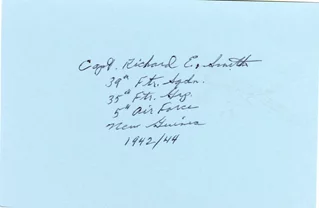 Capt. Richard E. Smith
39th Ftr. Sqdn.
35th Ftr. Grp.
5th Air Force
New Guinea
1942/44